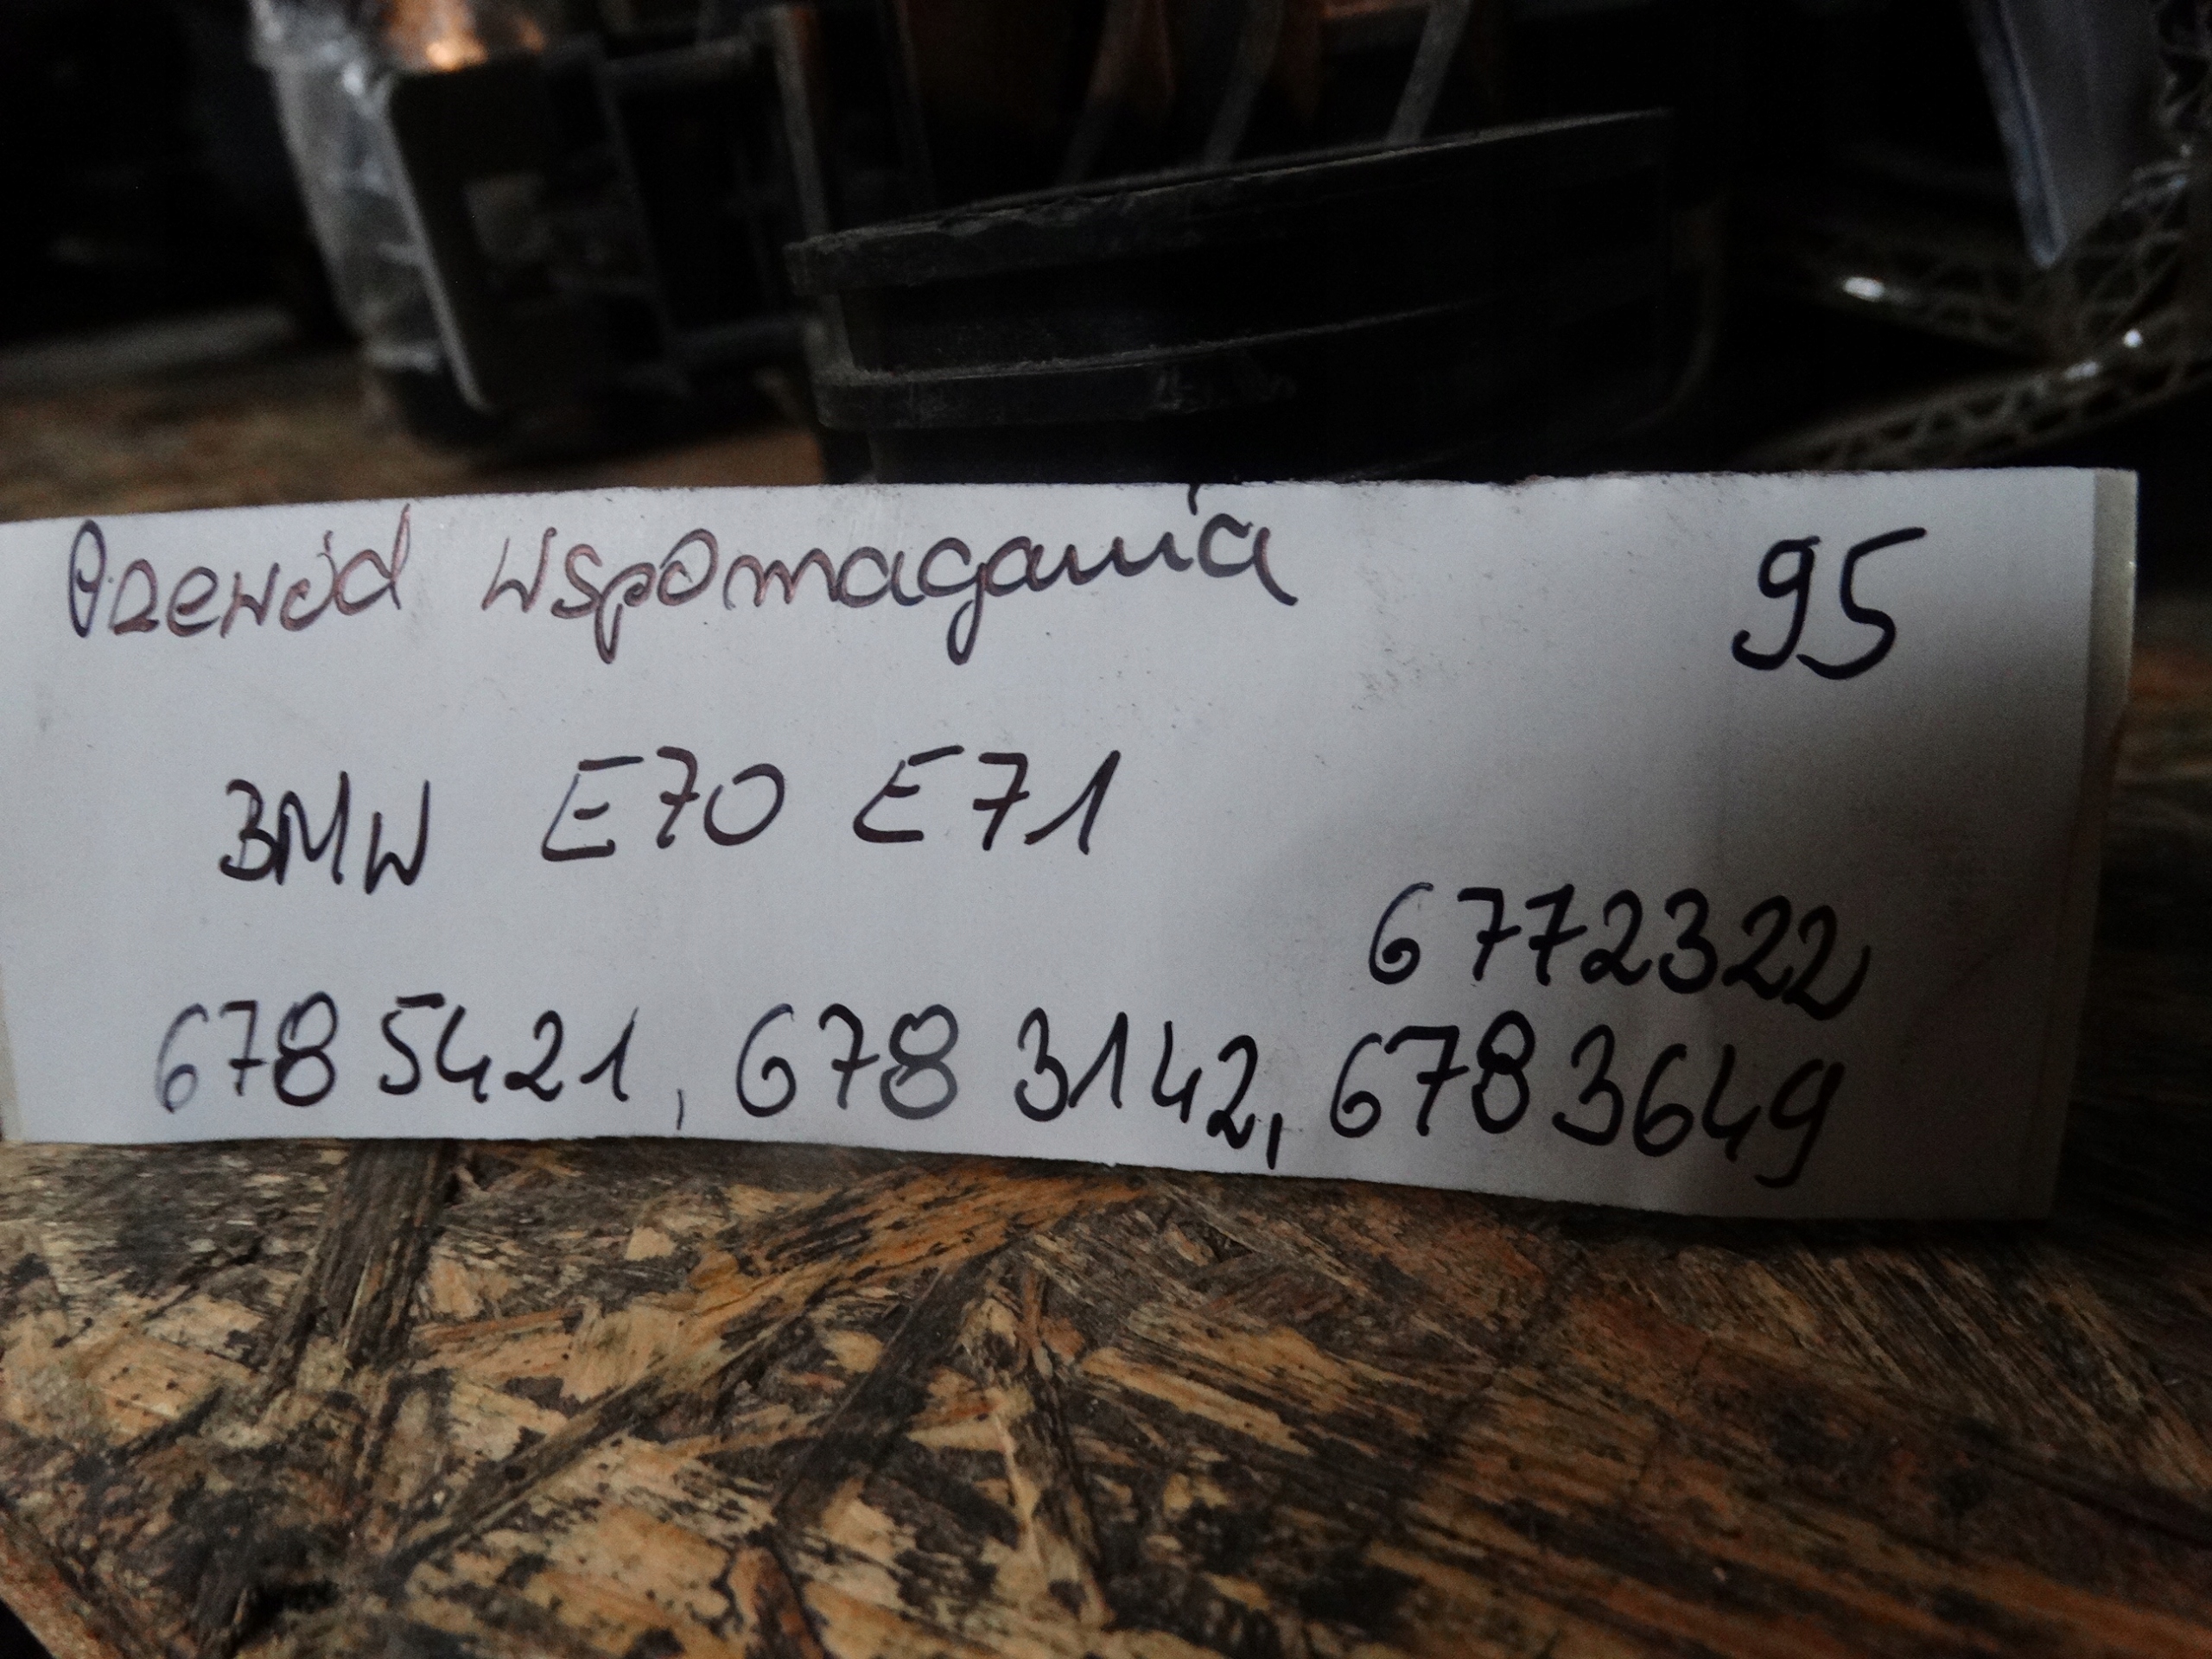 Przewód wspomagania 95
BMW E70 E71
6772322
678 5421, 678 3142, 678 3649